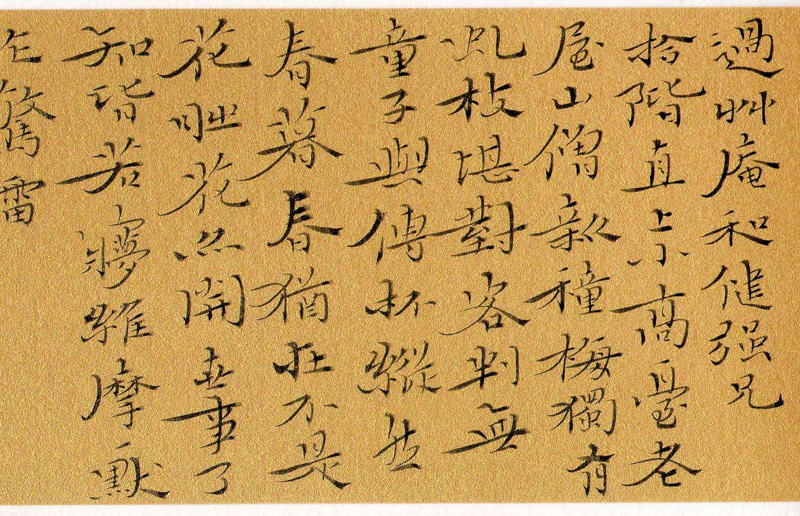 過艸庵和健强兄
拾階直上高臺老
屋山僧新種梅獨有
虬枝堪對客判無
童子與傳杯縱然
春暮春猶在不是
花時花亦開世事了
知皆若夢維摩一默
在驚雷